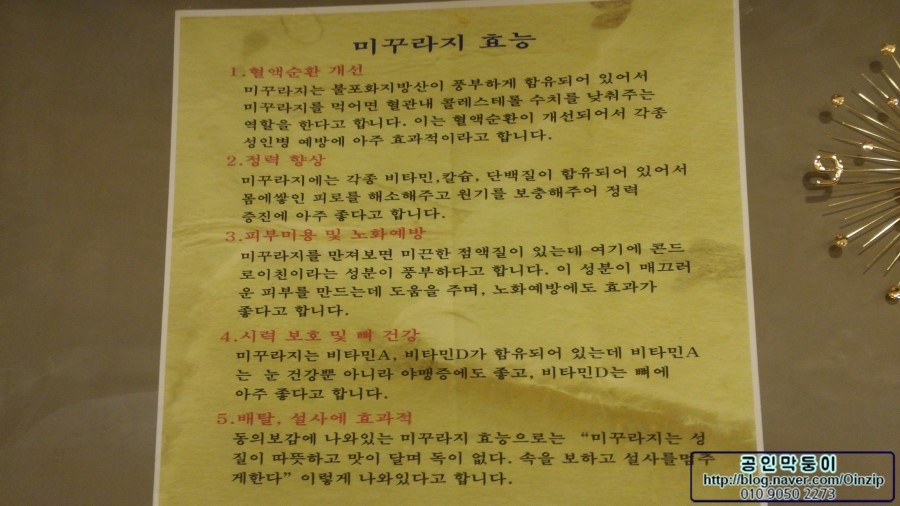 미꾸라지 효능
1.혈액순환 개선
미꾸라지는 불포화지방산이 풍부하게 함유되어 있어서
미꾸라지를 먹어면 혈관내 콜레스테롤 수치를 낮춰주는
역할을 한다고 합니다. 이는 혈액순환이 개선되어서 각종
성인병 예방에 아주 효과적이라고 합니다.
2.정력 향상
미꾸라지에는 각종 비타민,칼슘, 단백질이 함유되어 있어서
몸에쌓인 피로를 해소해주고 원기를 보충해주어 정력
증진에 아주 좋다고 합니다.
3.피부미용 및 노화예방
미꾸라지를 만져보면 미끈한 점액질이 있는데 여기에 콘드
로이친이라는 성분이 풍부하다고 합니다. 이 성분이 매끄러
운 피부를 만드는데 도움을 주며, 노화예방에도 효과가
좋다고 합니다.
4.시력 보호 및 뼈 건강
미꾸라지는 비타민A, 비타민D가 함유되어 있는데 비타민A
는 눈 건강뿐 아니라 야맹증에도 좋고, 비타민D는 뼈에
아주 좋다고 합니다.
5.배탈, 설사에 효과적
동의보감에 나와있는 미꾸라지 효능으로는 “미꾸라지는 성
질이 따뜻하고 맛이 달며 독이 없다. 속을 보하고 설사를멈추
게한다” 이렇게 나와있다고 합니다.
공인막둥이
http://blog.naver.com/Oinzip
010 9050 2273